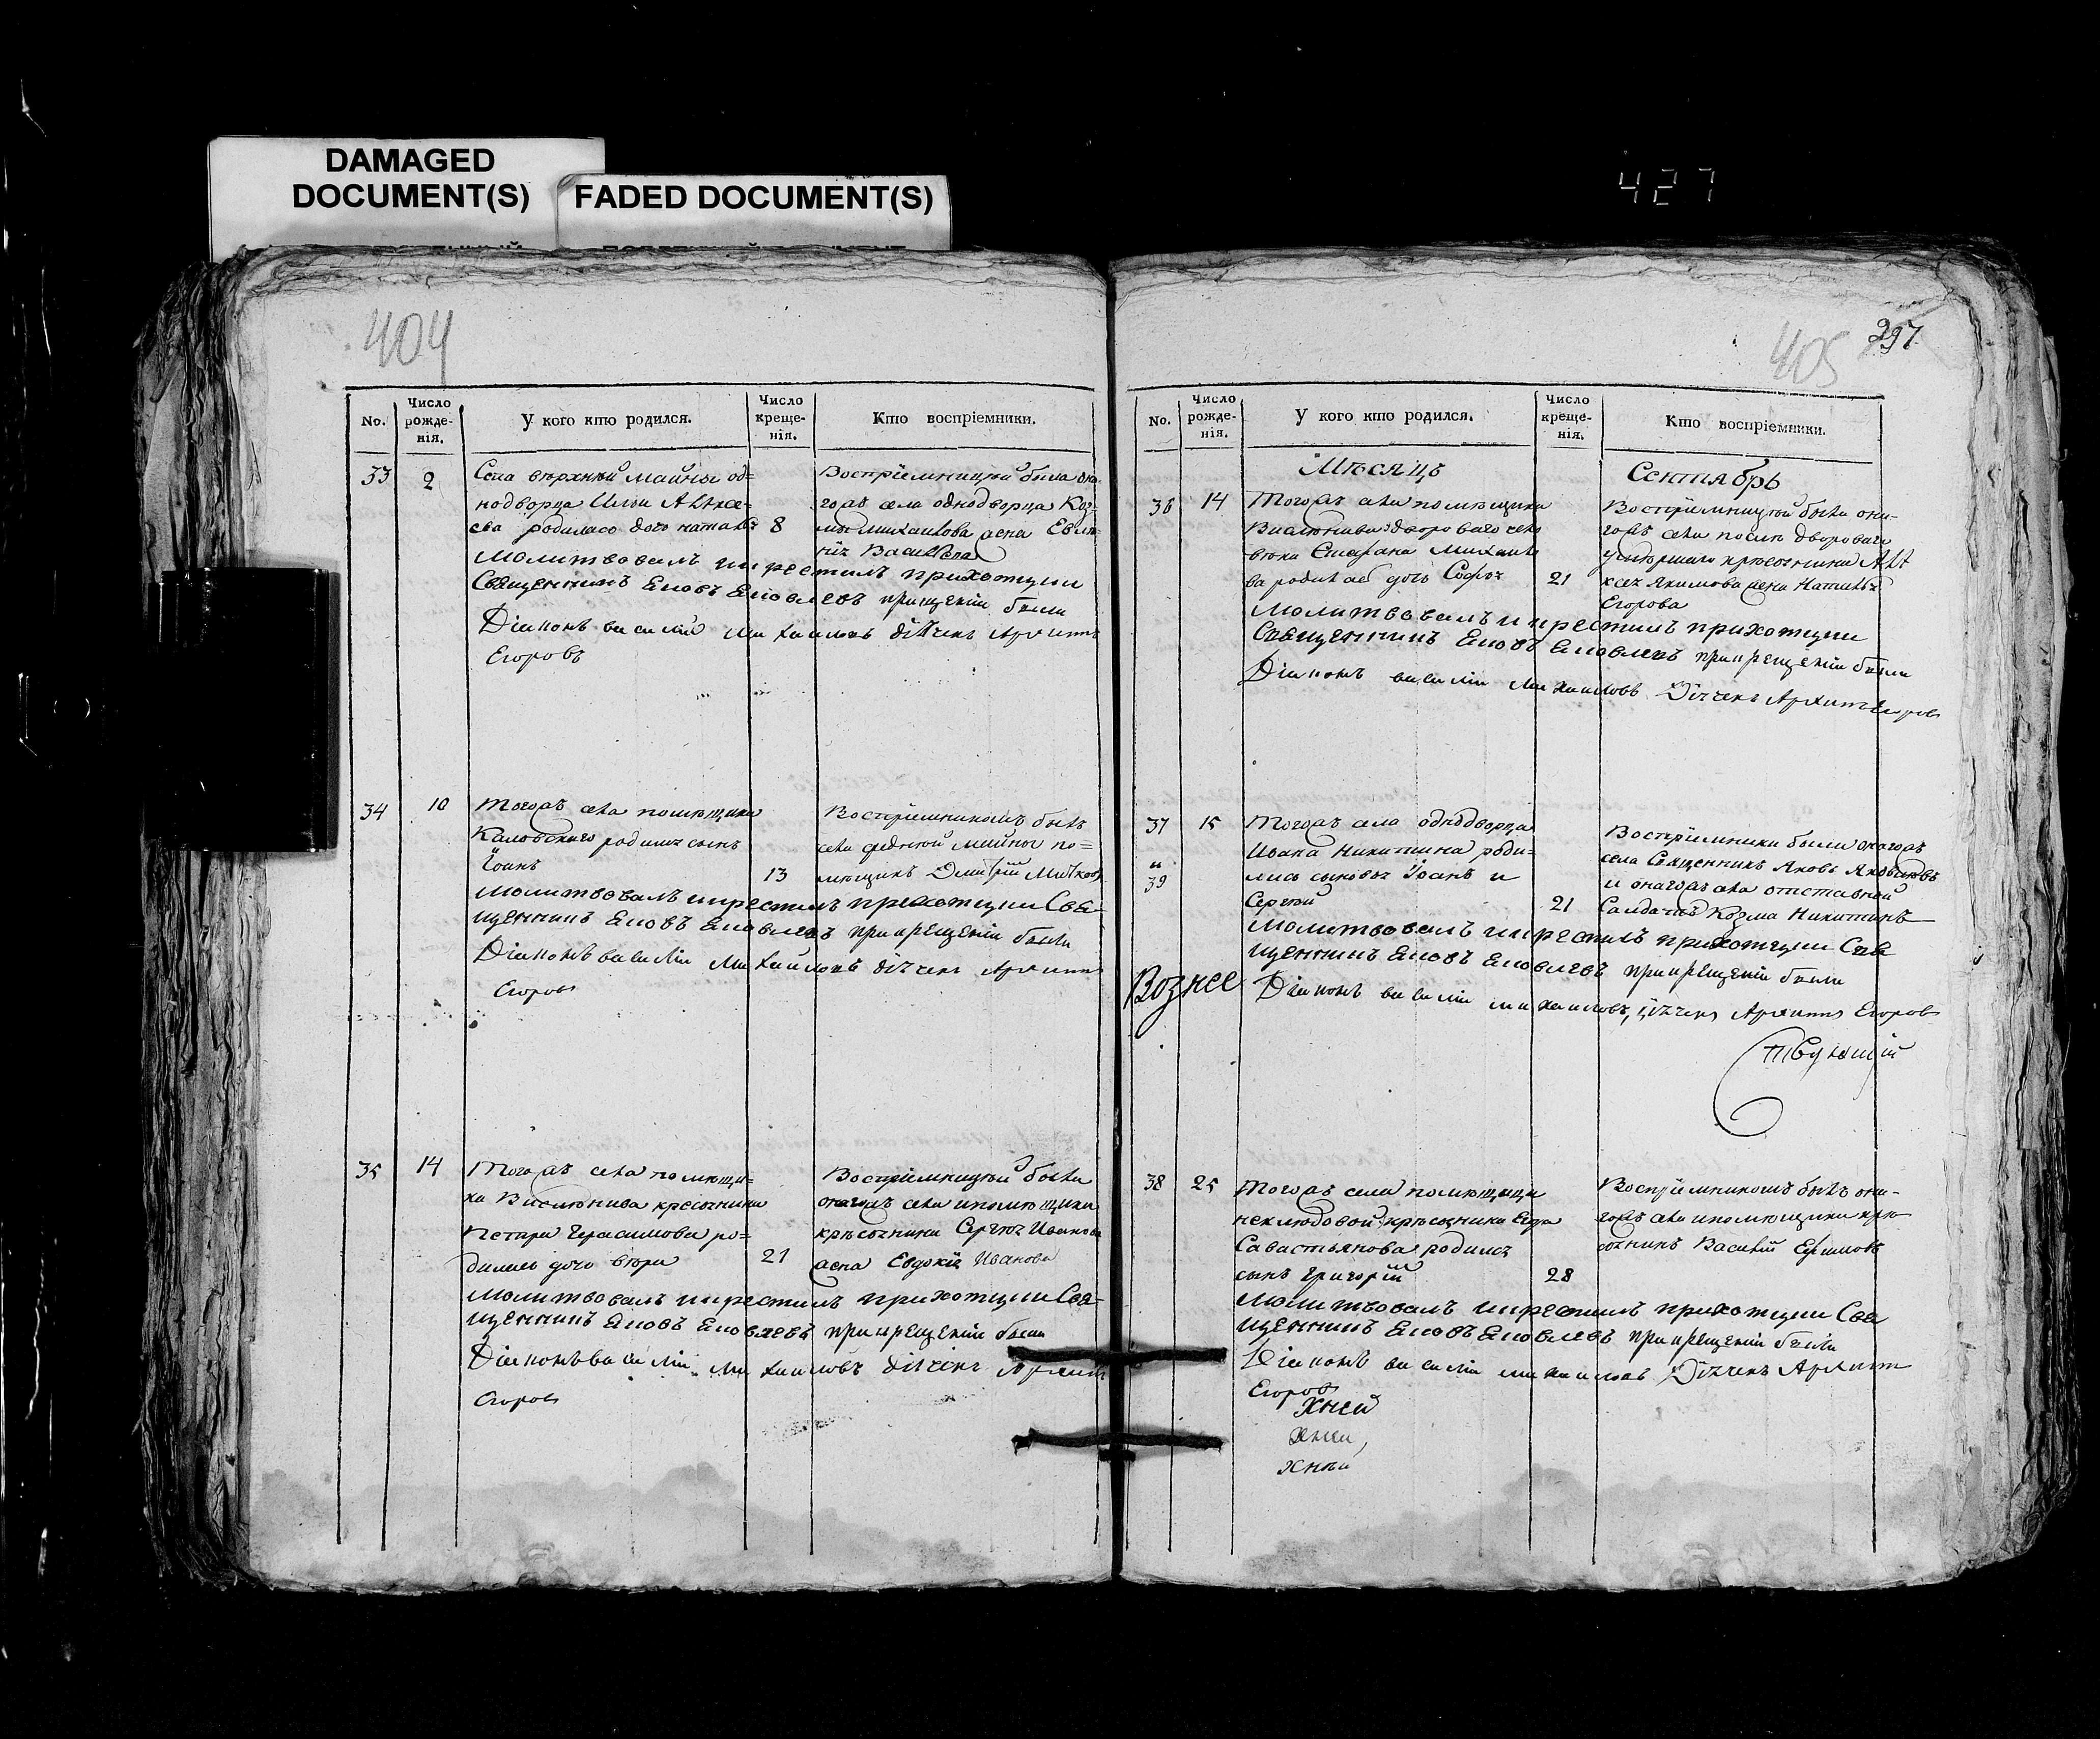 DAMAGED
DOCUMENT(S)
FADED DOCUMENT(S)
427
404
No.
Число рожде-нія.
У кого кто родился.
Число креще-нія.
Кто воспріемники.
33 2
Села верхней майны од=
нодворца Ильи Алѣксе=
ева родилась дочь наталья 8
Воспріемницей была она-
гожъ села однодворца Коз-
мы михаилова жена Евге
нія Васильева
молитвовалъ икрестилъ приходтции
Священникъ Ековъ Ековлевъ прикрещеніи были
Діаконъ василіи михаиловъ дьячекъ Архипъ
Егоровъ
34 10
Тогожъ села помѣщика
родился сынъ
Іоанъ 13
Воспріемникомъ былъ
села средней майны по=
мѣщикъ Дмитрій
молитвовалъ икрестилъ приходтции Свя-
щенникъ Ековъ Ековлевъ прикрещеніи были
Діаконъ василіи михаиловъ дьячекъ Архипъ
Егоровъ
35 14
Тогожъ села помѣщи=
ка крестьянина
Петра Герасимова ро=
дилась дочь вѣра 21
Воспріемницей была
онагожъ села ипомѣщика
крестьянина Сергѣя Иванова
жена Евдокія Иванова
молитвовалъ икрестилъ приходтции Свя-
щенникъ Ековъ Ековлевъ прикрещеніи были
Діаконъ василіи михаиловъ дьячекъ Архипъ
Егоровъ
405
297
No.
Число рожде-нія.
У кого кто родился.
Число креще-нія.
Кто воспріемники.
Мѣсяцъ Сентябрь
36 14
Тогожъ села помѣщика
дворового чело
вѣка Стефана Михаило
ва родилась дочь Софья 21
Воспріемницей была она-
гожъ села дворовая
умершаго крестьянина Але
ксея Якимова жена Наталья
Егорова
молитвовалъ икрестилъ приходтции
Священникъ Ековъ Ековлевъ прикрещеніи были
Діаконъ василіи михаиловъ Дьячекъ Архипъ Егоровъ
37 15
" 39
Тогожъ села однодворца
Ивана Никитина роди=
лись сыновья Іоанъ и
Сергѣй 21
Воспріемники были онагожъ
села Священникъ Яковъ Яковлевъ
и онагожъ села отставной
Салдатъ Козма Никитинъ
молитвовалъ икрестилъ приходтции Свя
щенникъ Ековъ Ековлевъ прикрещеніи были
Вознее
Діаконъ василіи михаиловъ, дьячекъ Архипъ Егоровъ
38 25
Тогожъ села помѣщицы
неклюдовой крестьянина
Савастьянова родился
сынъ Григорій 28
Воспріемникомъ былъ она-
гожъ села ипомѣщика кре
стьянинъ Василій Ефимовъ
молитвовалъ икрестилъ приходтции Свя
щенникъ Ековъ Ековлевъ прикрещеніи были
Діаконъ василіи михаиловъ Дьячекъ Архипъ
Егоровъ